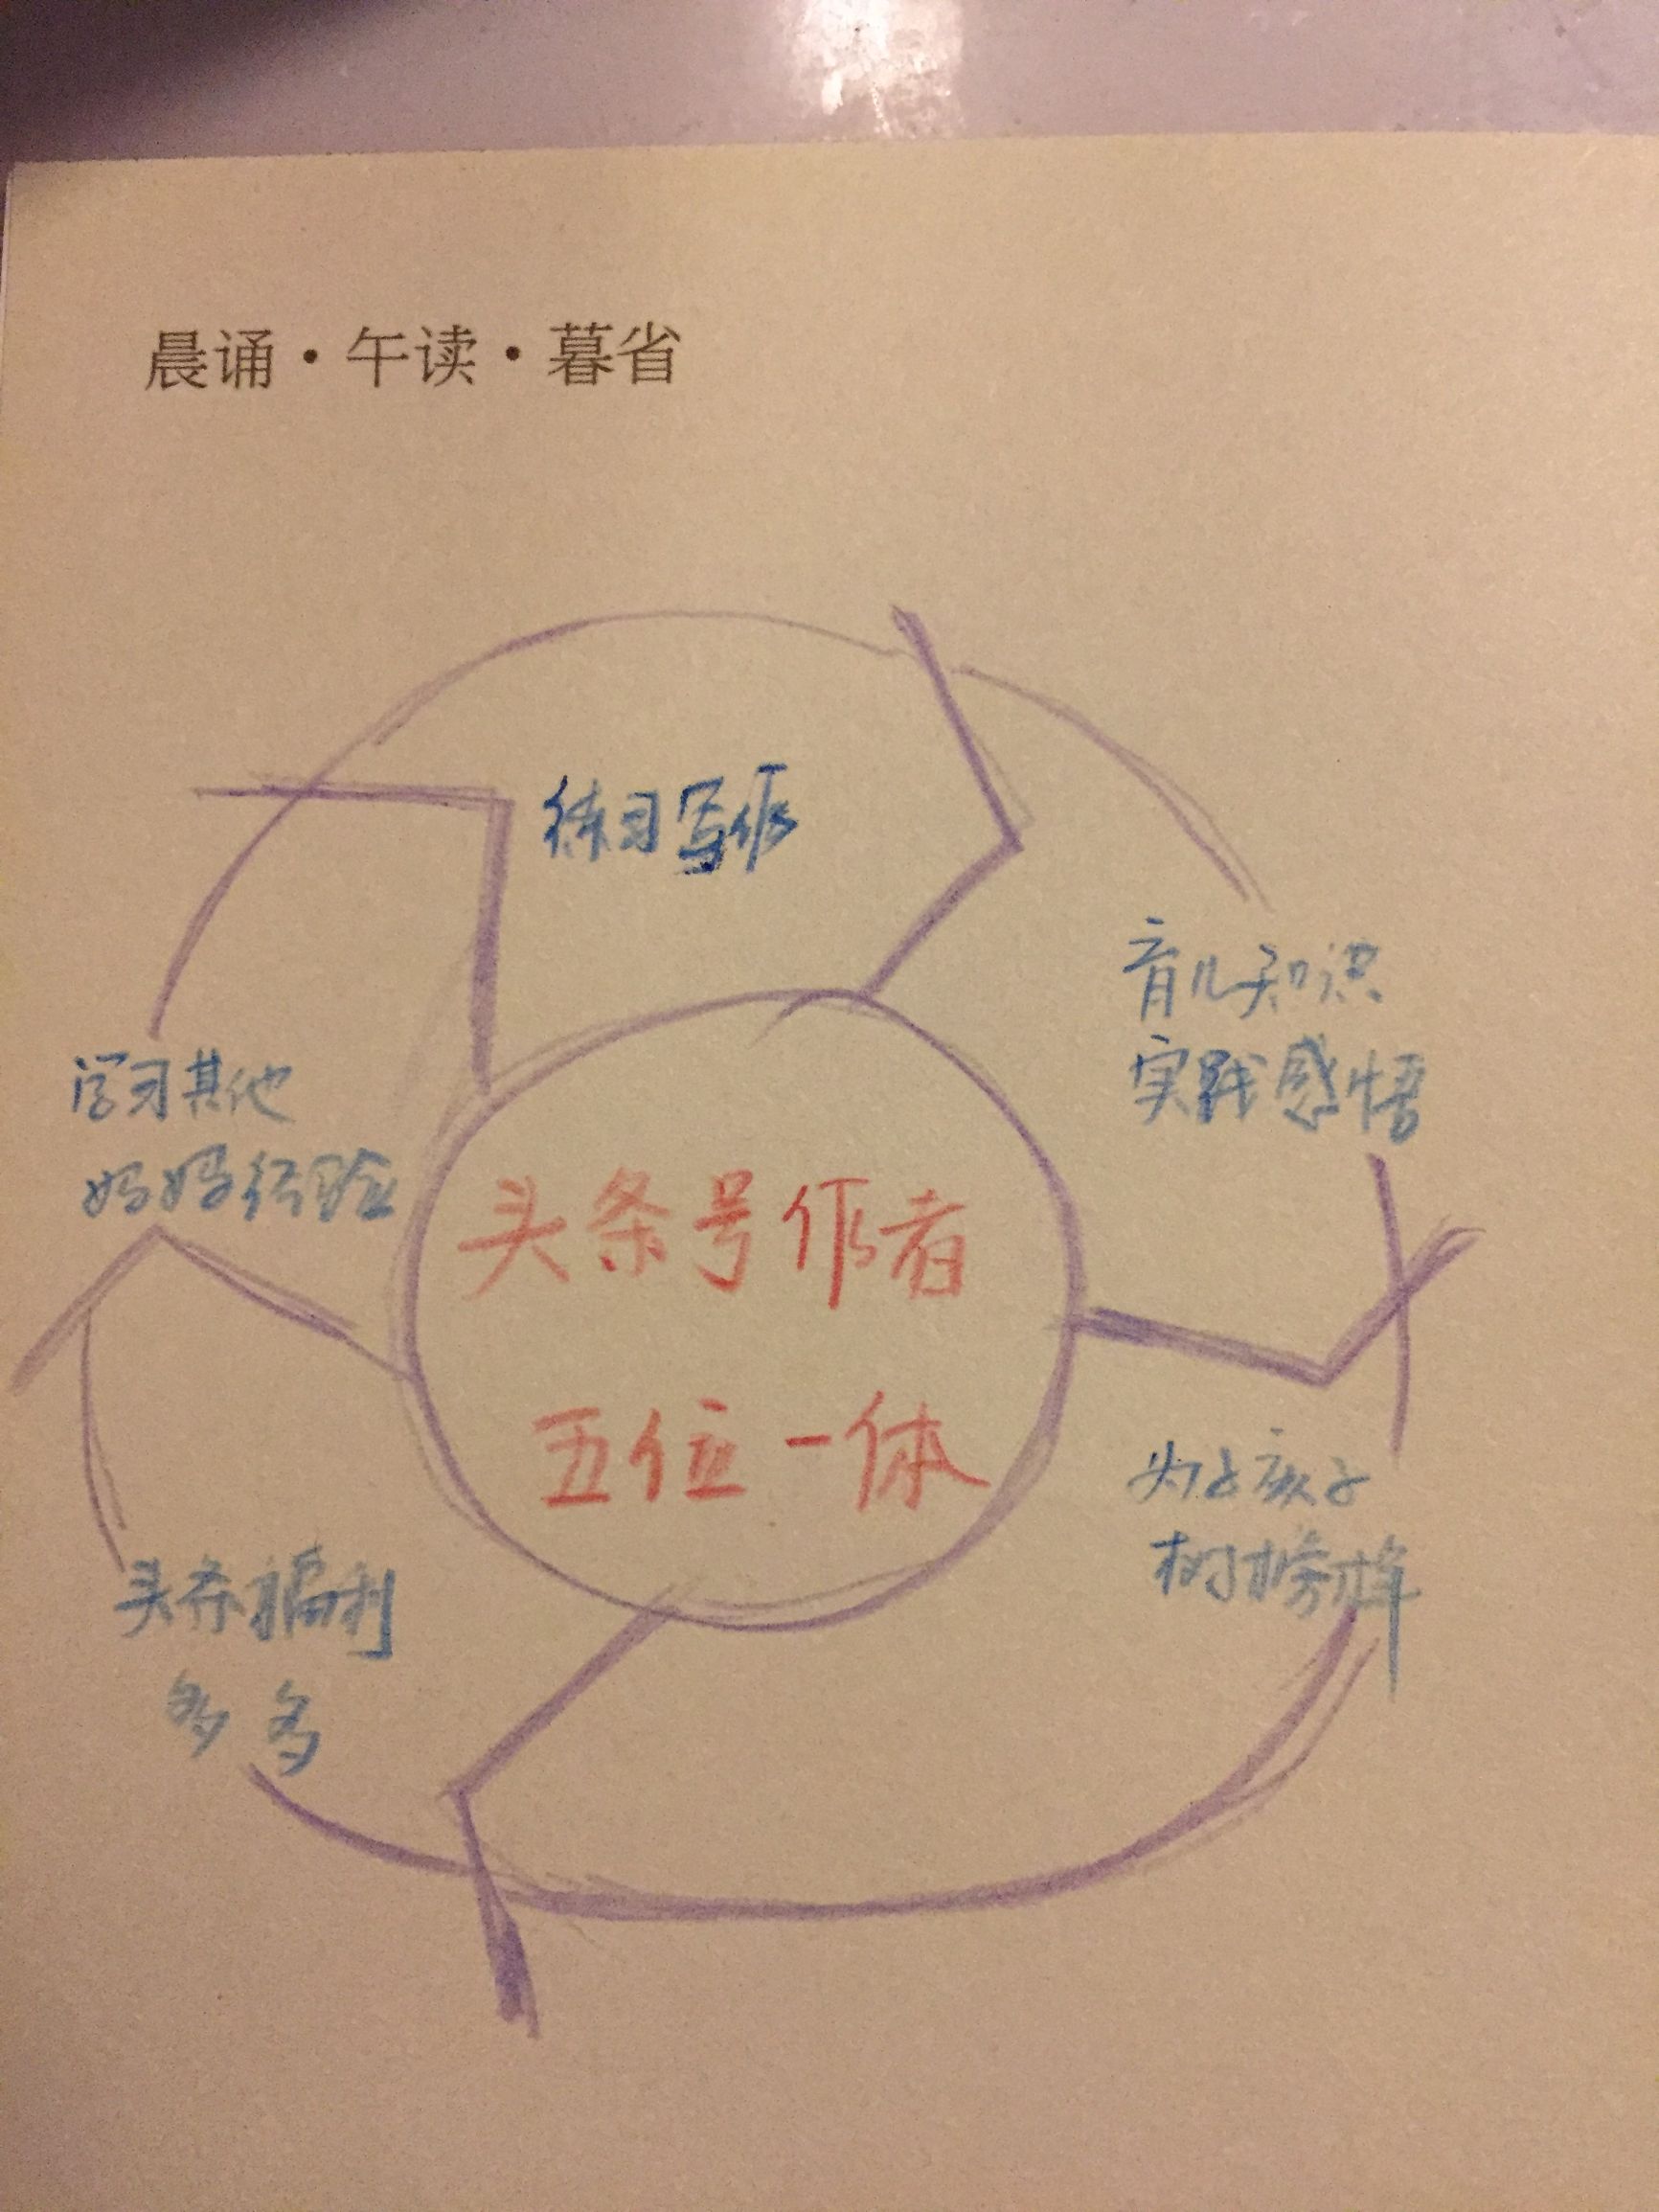 晨诵·午读·暮省
练习写作
育儿知识
实践感悟
为孩子
树榜样
头条福利
多多
学习其他
妈妈经验
头条号作者
五位一体